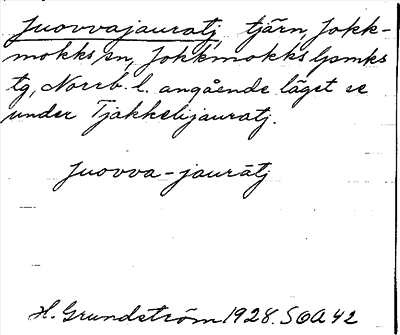 Juovvajauratj, tjärn, Jokk-
mokks sn, Jokkmokks lpmks
tg, Norrb. l. angående läget se
under Tjakkelijauratj.
Juovva-jaurātj
H. Grundström 1928. SOA 42